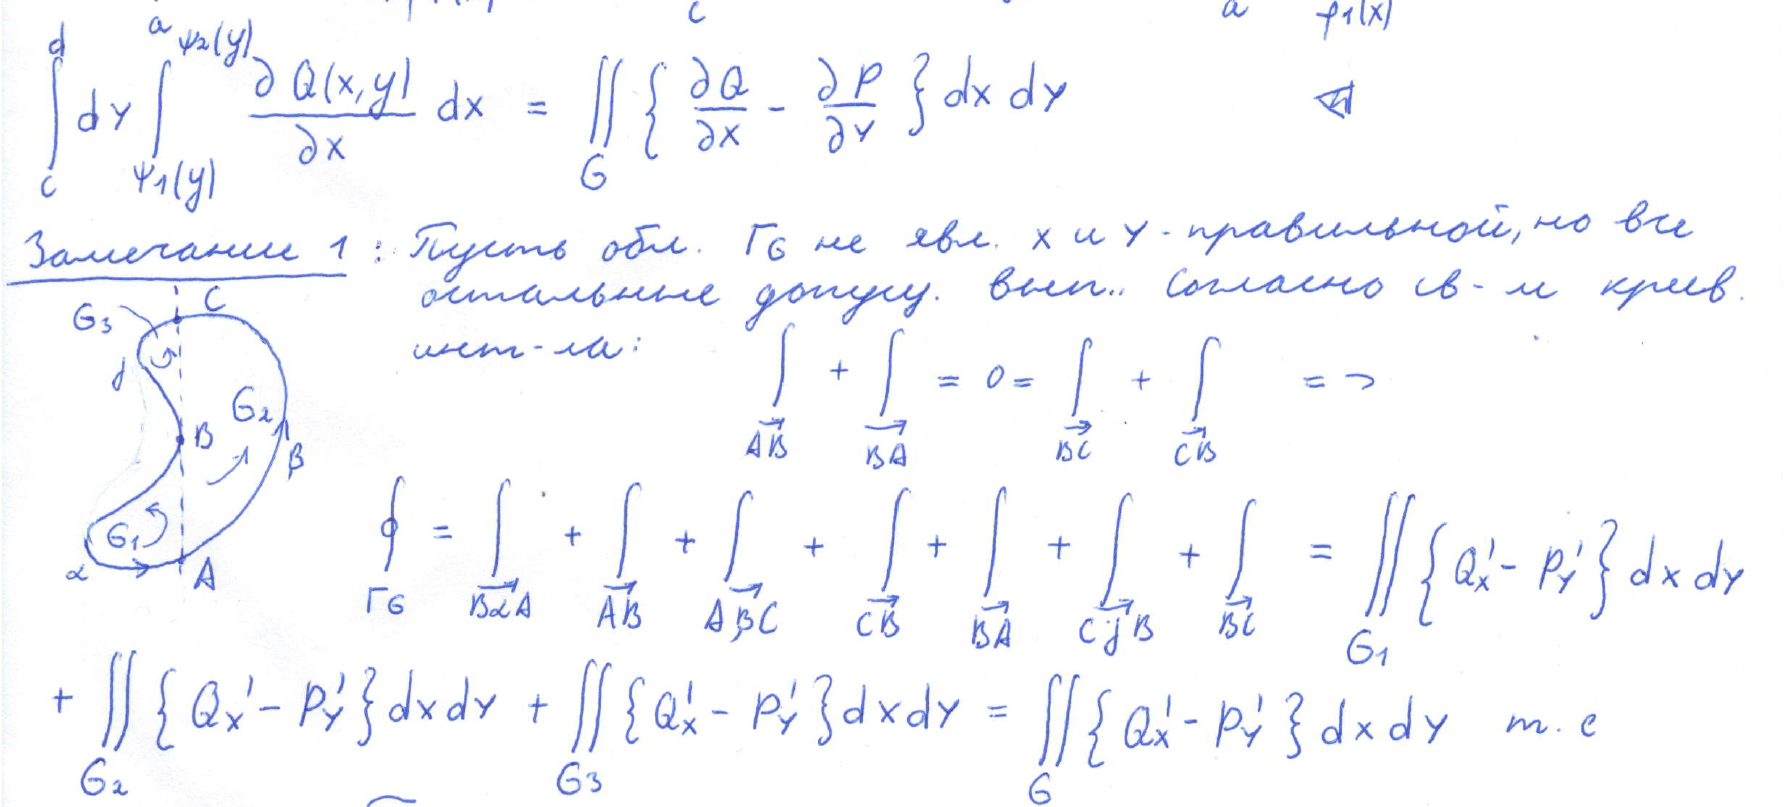 c a φ1(x)
∫_c^d dy ∫_{ψ1(y)}^{ψ2(y)} ∂Q(x,y)/∂x dx = ∬_G { ∂Q/∂x - ∂P/∂y } dx dy ◁
Замечание 1: Пусть обл. ΓG не явл. x и y-правильной, но все
остальные допущ. вып.. Согласно св-м крив.
инт-ла:
∫_{AB} + ∫_{BA} = 0 = ∫_{BC} + ∫_{CB} =>
G3 C γ G2 B β G1 α A
∮_{ΓG} = ∫_{BαA} + ∫_{AB} + ∫_{AβC} + ∫_{CB} + ∫_{BA} + ∫_{CγB} + ∫_{BC} = ∬_{G1} { Q'x - P'y } dx dy
+ ∬_{G2} { Q'x - P'y } dx dy + ∬_{G3} { Q'x - P'y } dx dy = ∬_G { Q'x - P'y } dx dy т.е